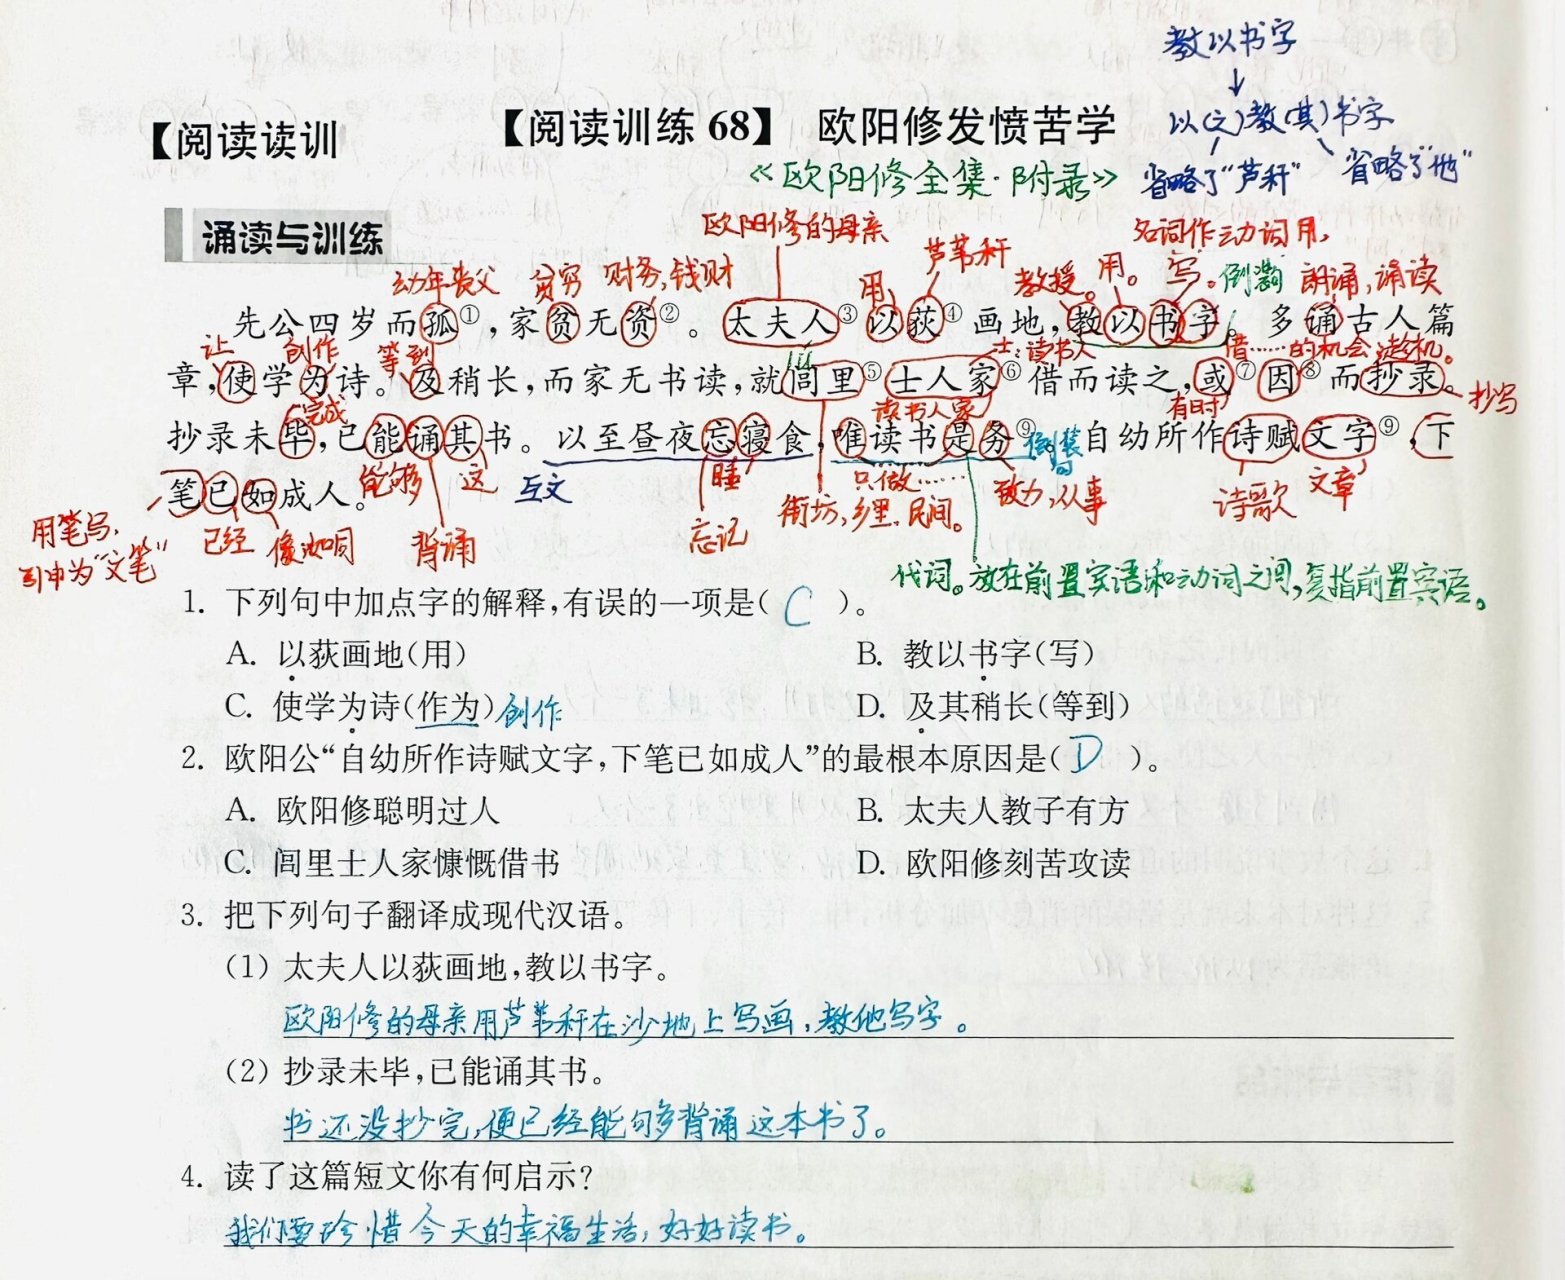 教以书字
↓
以(之)教(其)书字
省略了"芦秆" 省略了"他"
【阅读读训 【阅读训练 68】 欧阳修发愤苦学
《欧阳修全集·附录》
诵读与训练
欧阳修的母亲 名词作动词用,
幼年丧父 贫穷 财务,钱财 用, 芦苇秆 教授。 用。 写。 倒装 朗诵,诵读
先公四岁而孤①,家贫无资②。太夫人③以荻④画地,教以书字。多诵古人篇
让 创作 等到 士:读书人 借……的机会 趁机。
章,使学为诗。及稍长,而家无书读,就闾里⑤士人家⑥借而读之,或⑦因⑧而抄录。
完成 读书人家 有时 抄写
抄录未毕,已能诵其书。以至昼夜忘寝食,唯读书是务⑨。自幼所作诗赋文字⑨,下
倒装句
笔已如成人。能够 这 互文 睡 只做…… 致力,从事 诗歌 文章
用笔写, 已经 像,如同 背诵 忘记 街坊,乡里,民间。
引申为"文笔"
代词。放在前置宾语和动词之间,复指前置宾语。
1. 下列句中加点字的解释,有误的一项是( C )。
A. 以荻画地(用) B. 教以书字(写)
C. 使学为诗(作为) 创作 D. 及其稍长(等到)
2. 欧阳公“自幼所作诗赋文字,下笔已如成人”的最根本原因是( D )。
A. 欧阳修聪明过人 B. 太夫人教子有方
C. 闾里士人家慷慨借书 D. 欧阳修刻苦攻读
3. 把下列句子翻译成现代汉语。
(1) 太夫人以荻画地,教以书字。
欧阳修的母亲用芦苇秆在沙地上写画,教他写字。
(2) 抄录未毕,已能诵其书。
书还没抄完,便已经能够背诵这本书了。
4. 读了这篇短文你有何启示?
我们要珍惜今天的幸福生活,好好读书。